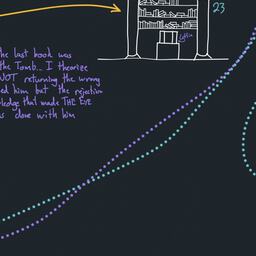 23
coffin
he last book was
the Tomb.. I theorize
NOT returning the wrong
ed him but the rejection
ledge that made THE EYE
s done with him